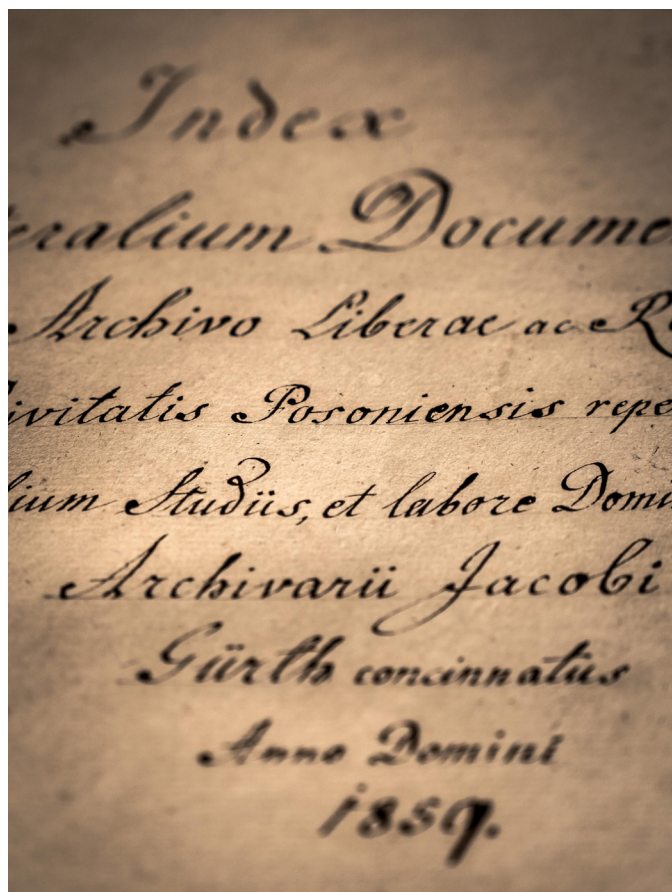 Index
eralium Docume
Archivo Liberae ac R
ivitatis Posoniensis repe
lium Studiis, et labore Domi
Archivarii Jacobi
Gürth concinnatus
Anno Domini
1859.